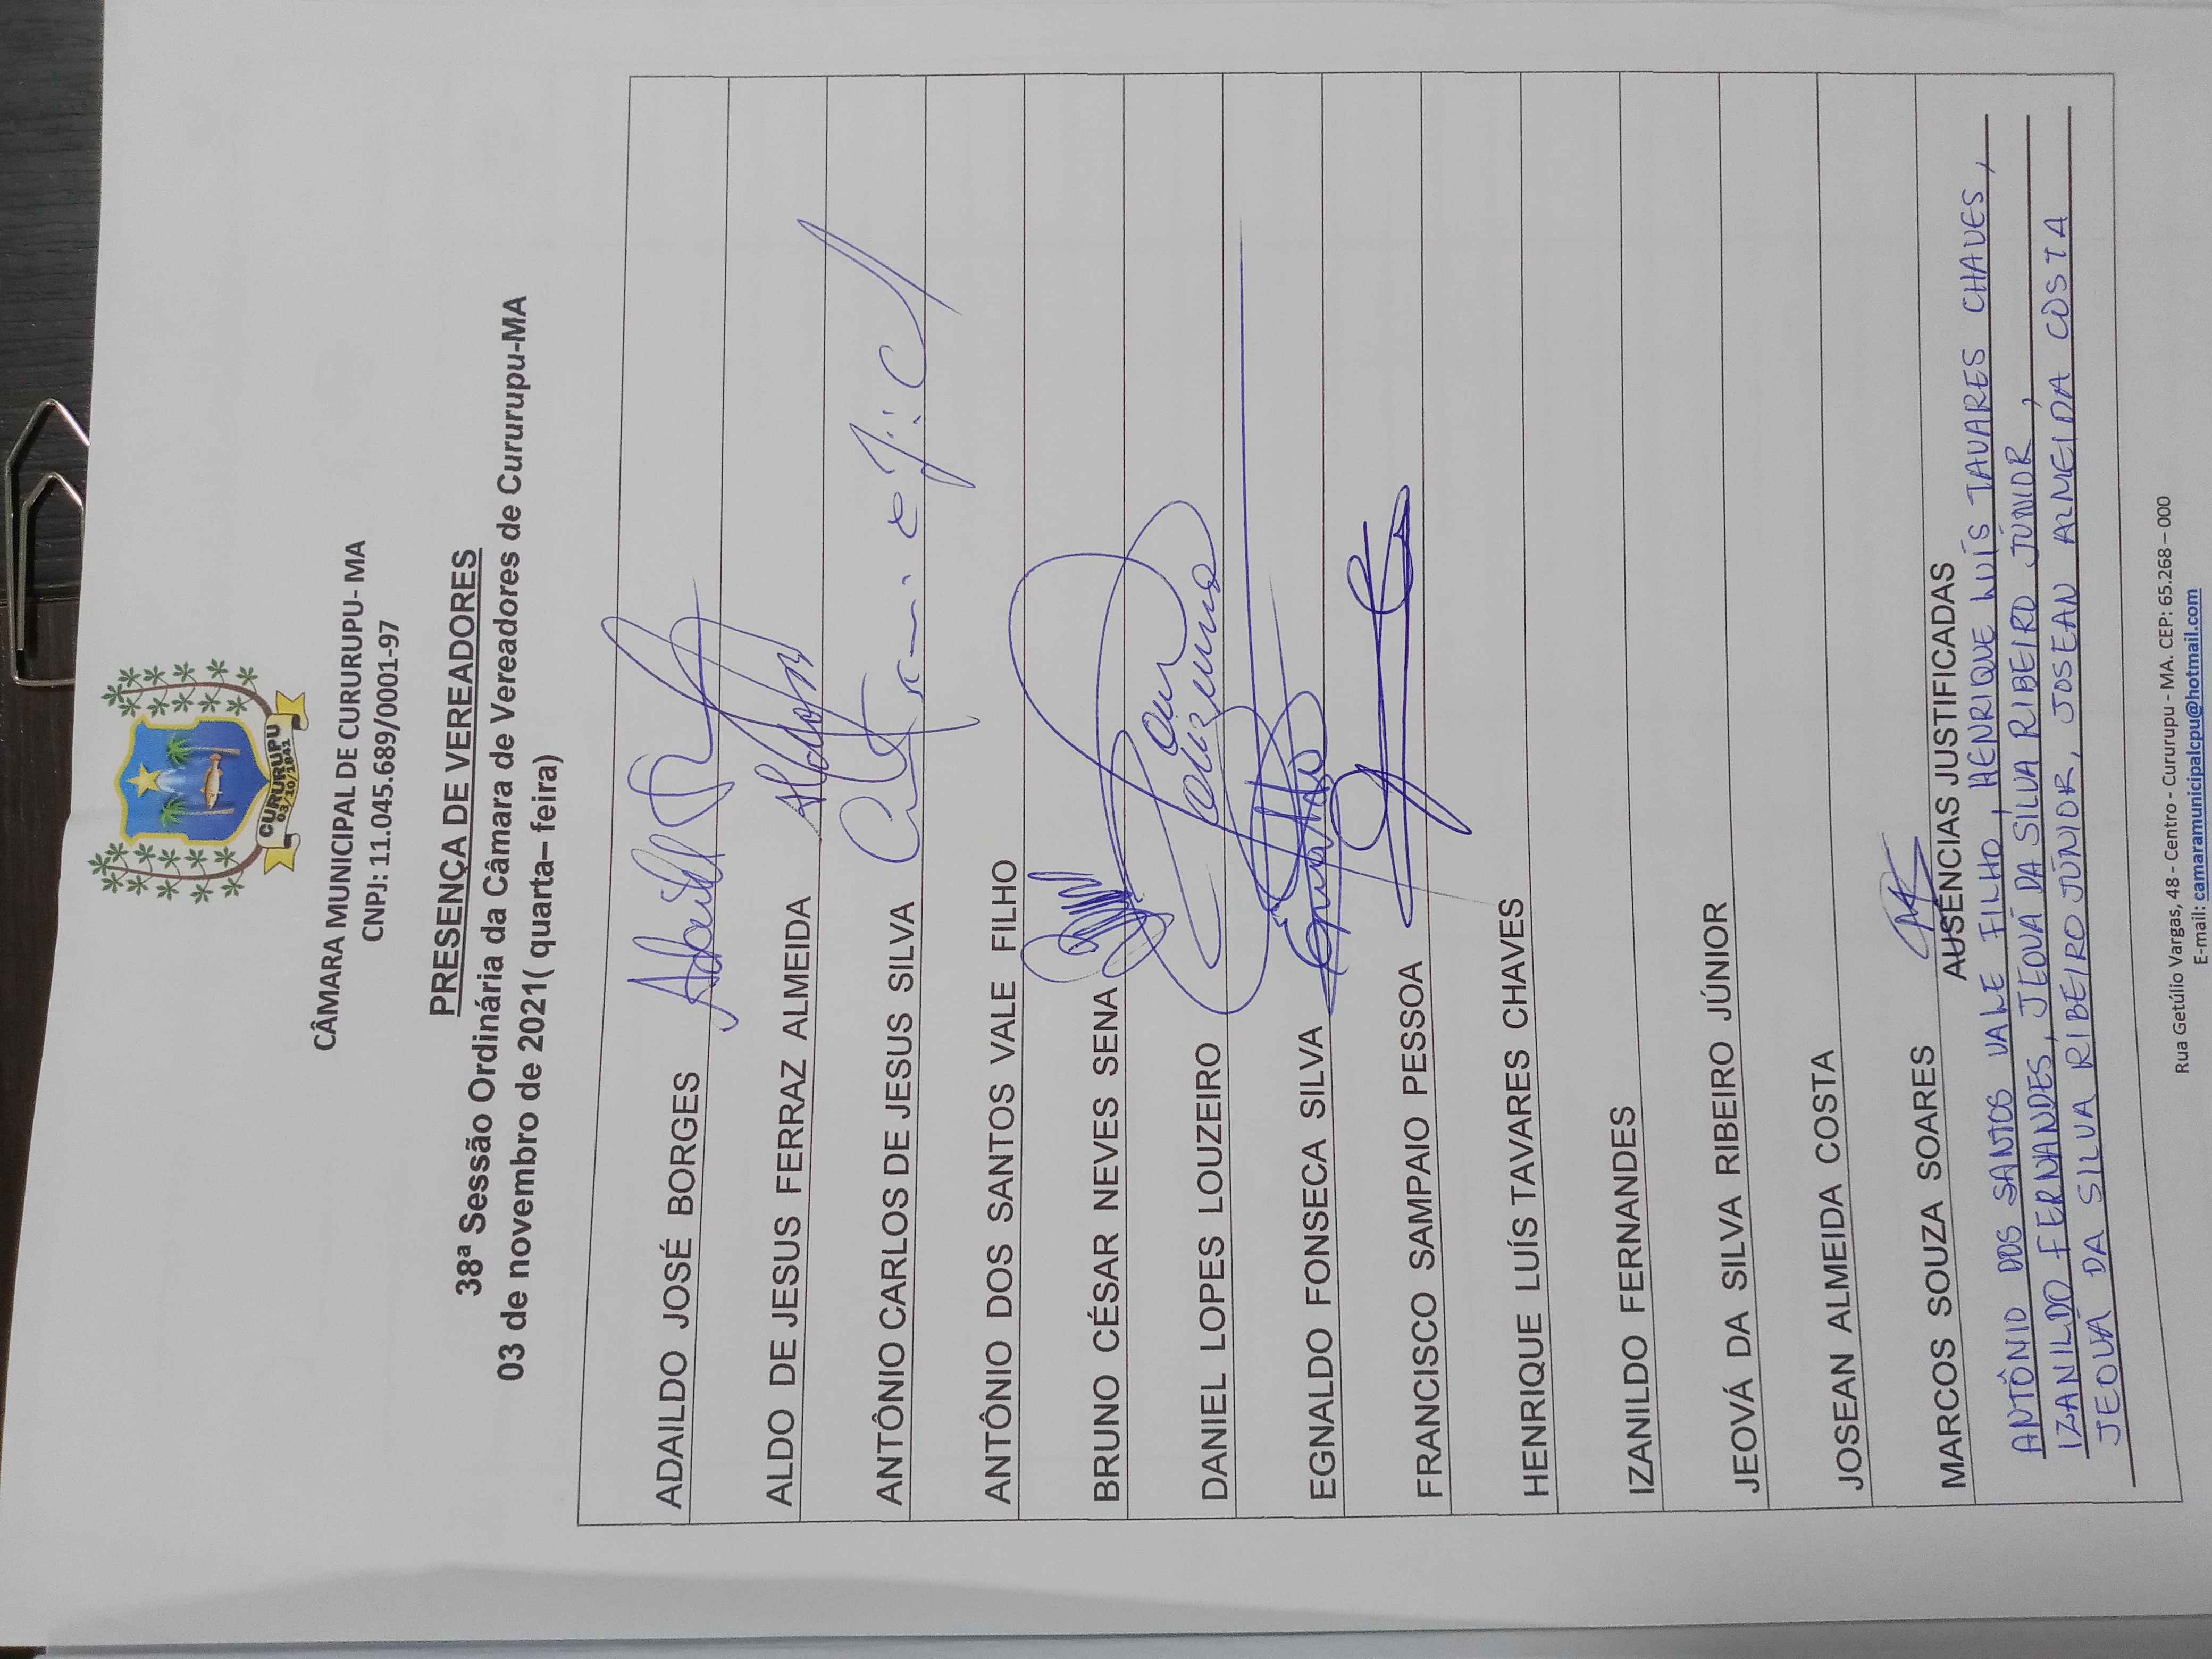 CURURUPU
03/10/1841
CÂMARA MUNICIPAL DE CURURUPU- MA
CNPJ: 11.045.689/0001-97
PRESENÇA DE VEREADORES
38ª Sessão Ordinária da Câmara de Vereadores de Cururupu-MA
03 de novembro de 2021( quarta– feira)
ADAILDO JOSÉ BORGES
ALDO DE JESUS FERRAZ ALMEIDA
ANTÔNIO CARLOS DE JESUS SILVA
ANTÔNIO DOS SANTOS VALE FILHO
BRUNO CÉSAR NEVES SENA
DANIEL LOPES LOUZEIRO
EGNALDO FONSECA SILVA
FRANCISCO SAMPAIO PESSOA
HENRIQUE LUÍS TAVARES CHAVES
IZANILDO FERNANDES
JEOVÁ DA SILVA RIBEIRO JÚNIOR
JOSEAN ALMEIDA COSTA
MARCOS SOUZA SOARES
AUSÊNCIAS JUSTIFICADAS
ANTÔNIO DOS SANTOS VALE FILHO, HENRIQUE LUÍS TAVARES CHAVES,
IZANILDO FERNANDES, JEOVÁ DA SILVA RIBEIRO JÚNIOR,
JEOVÁ DA SILVA RIBEIRO JÚNIOR, JOSEAN ALMEIDA COSTA
Rua Getúlio Vargas, 48 - Centro - Cururupu - MA. CEP: 65.268 – 000
E-mail: camaramunicipalcpu@hotmail.com